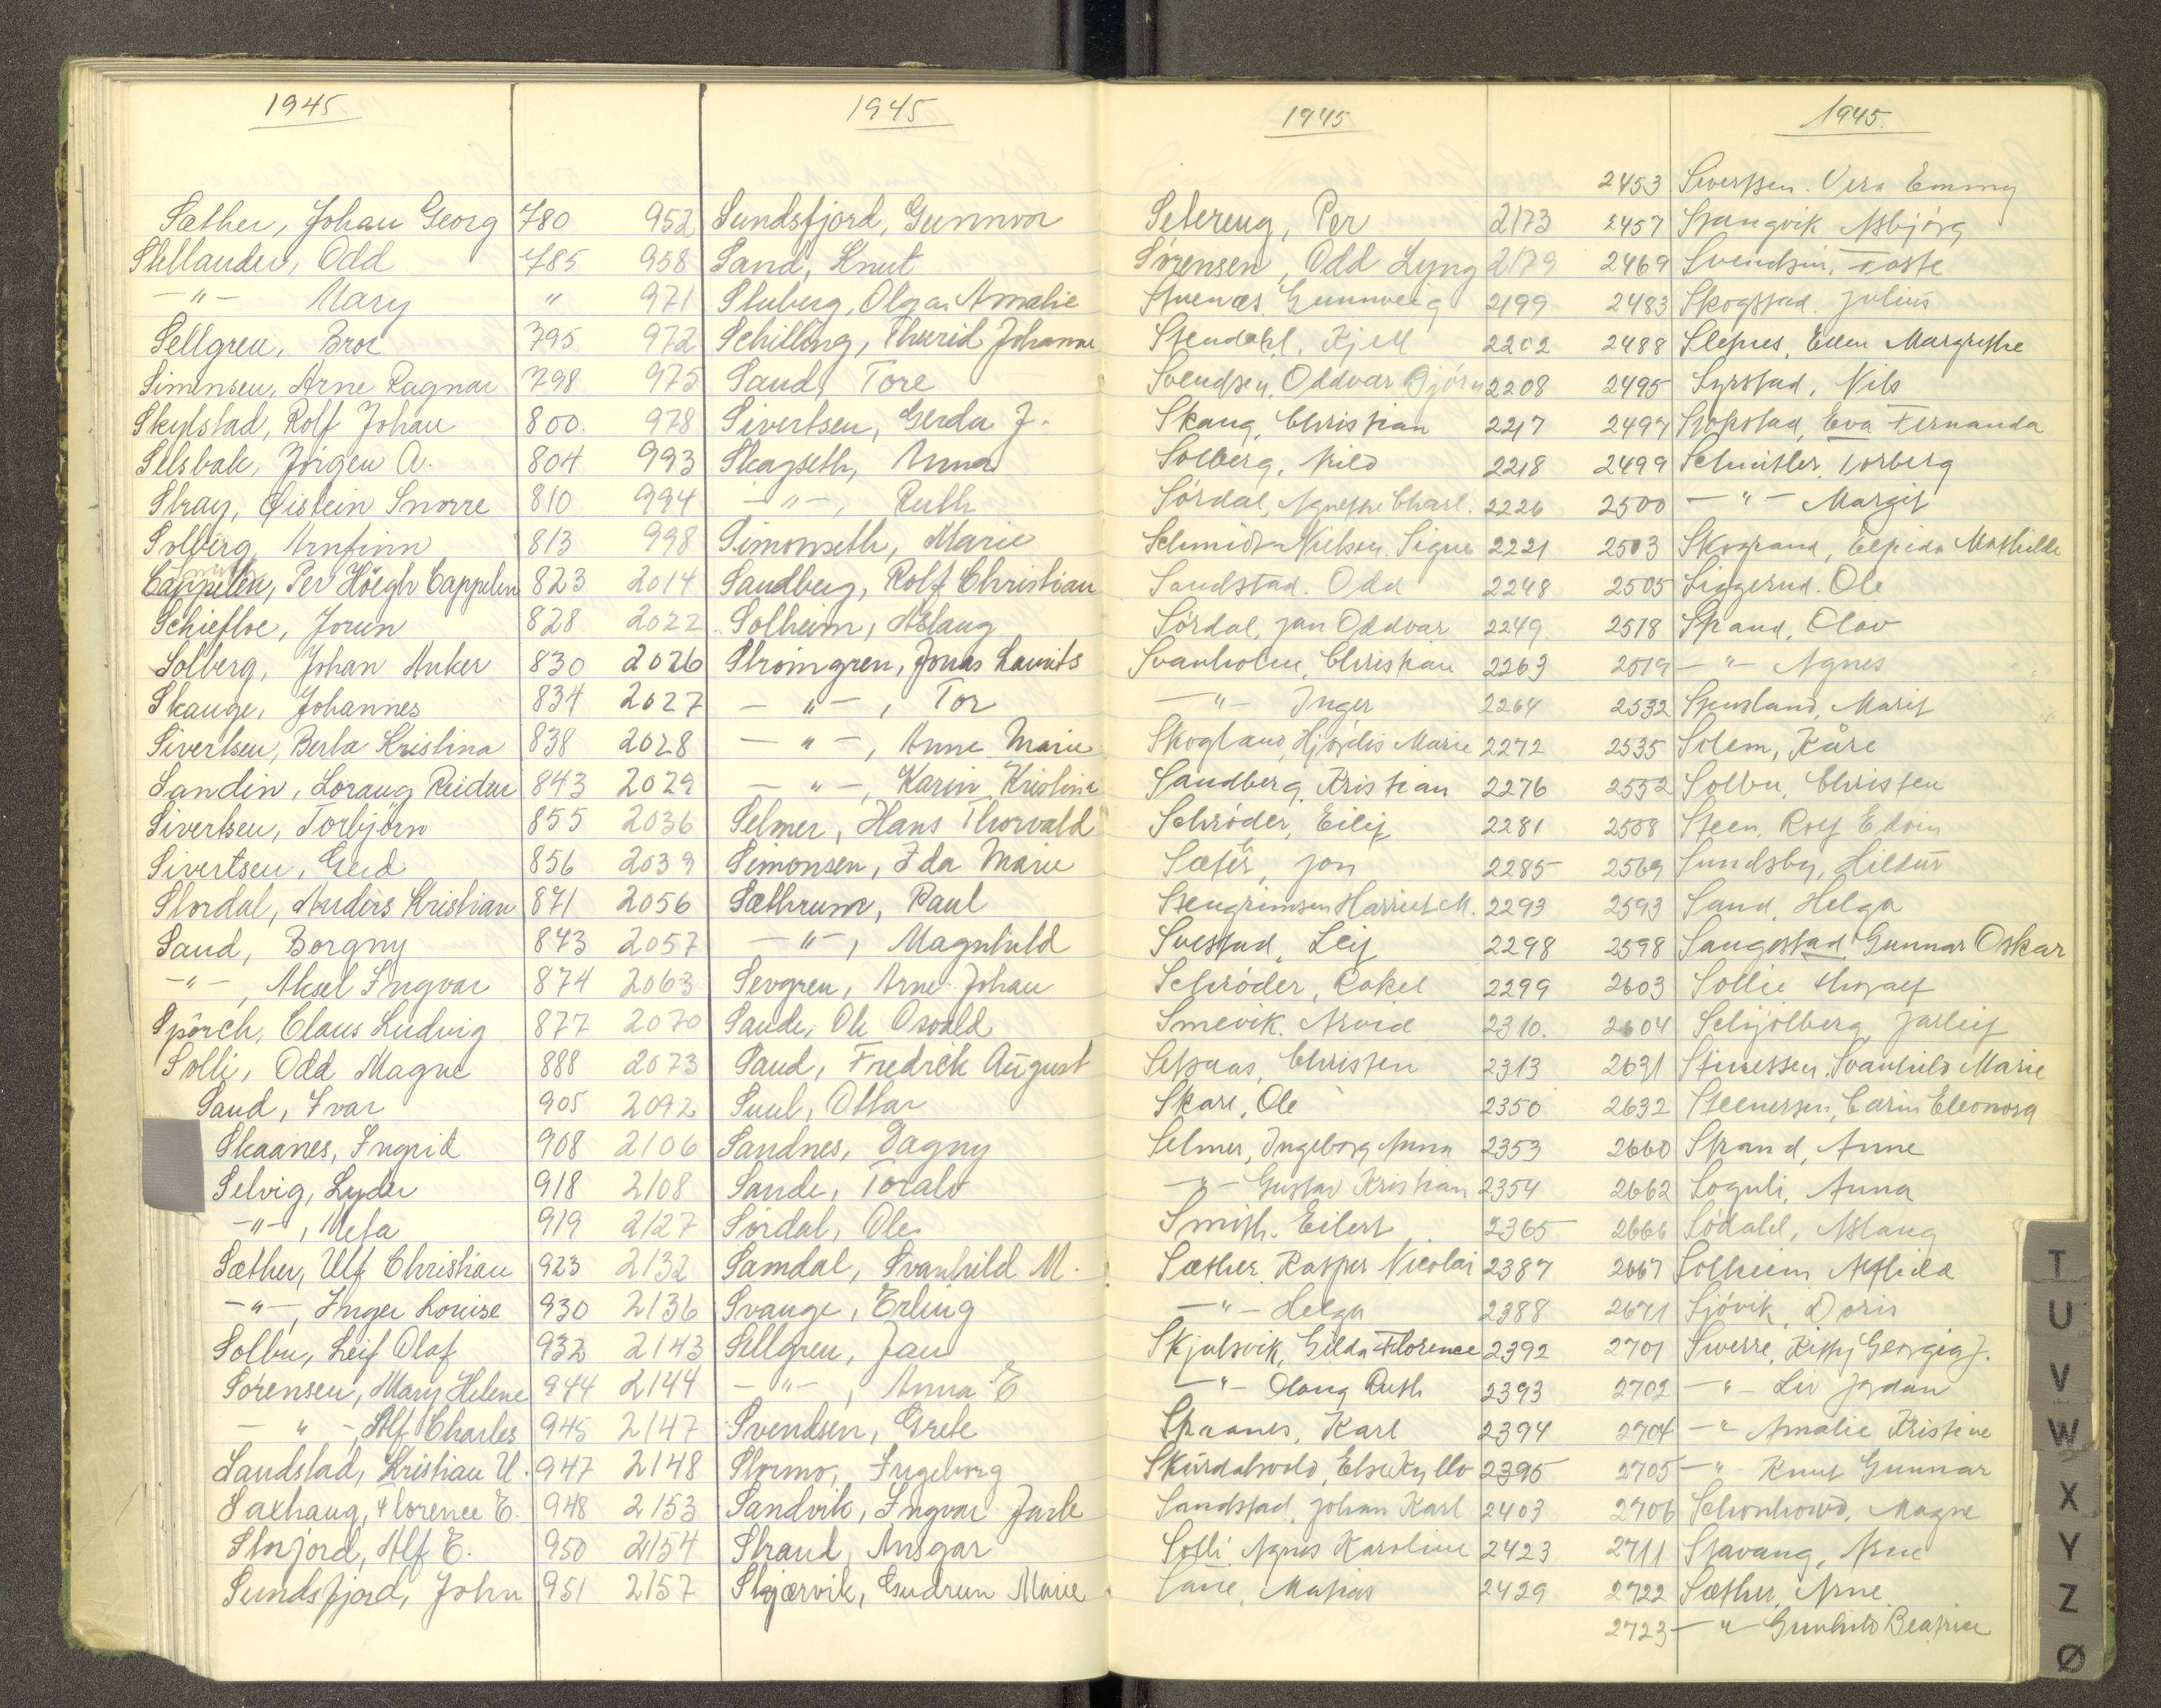 1945
Sæther, Johan Georg 780
Stellander, Odd 785
—"— Mary "
Sellgren, Bror 795
Simensen, Arne Ragnar 798
Skylstad, Rolf Johan 800.
Selsbak, Jørgen A. 804
Stray, Øistein Snorre 810
Solberg, Arnfinn 813
Cappelen, Per Höegh Cappelen 823
Schiefloe, Jorun 828
Solberg, Johan Anker 830
Skauge, Johannes 834
Sivertsen, Berta Kristina 838
Sandin, Loraug Reidun 843
Sivertsen, Torbjörn 855
Sivertsen, Gerd 856
Stordal, Anders Kristian 871
Sand, Borgny 873
—"—, Aksel Ingvar 874
Spörch, Claus Ludvig 877
Solli, Odd Magne 888
Sand, Ivar 905
Skaanes, Ingrid 908
Selvig, Lyder 918
—"—, Meta 919
Sæther, Ulf Christian 923
—"—, Inger Louise 930
Solbu, Leif Olaf 932
Sørensen, Mary Helene 944
—"—, Alf Charles 945
Sandstad, Kristian U. 947
Saxhaug, Florence E. 948
Storjord, Alf E. 950
Sundsfjord, John 951
1945
952 Sundsfjord, Gunnvor
958 Sand, Knut
971 Stuberg, Olga Amalie
972 Schilling, Thurid Johanne
975 Sand, Tore
978 Sivertsen, Gerda J.
993 Skagseth, Anna
994 —"—, Ruth
998 Simonseth, Marie
2014 Sandberg, Rolf Christian
2022 Solheim, Aslaug
2026 Strömgren, Jonas Laurits
2027 —"—, Tor
2028 —"—, Anne Marie
2029 —"—, Karin Kristine
2036 Selmer, Hans Thorvald
2039 Simonsen, Ida Marie
2056 Sæthrum, Paul
2057 —"—, Magnhild
2063 Sevgren, Arne Johan
2070 Sande, Ole Osvald
2073 Sand, Fredrik August
2092 Suul, Ottar
2106 Sandnes, Dagny
2108 Sande, Toralv
2127 Sørdal, Ole
2132 Samdal, Svanhild M.
2136 Svange, Erling
2143 Sellgren, Jan
2144 —"—, Anna E
2147 Svendsen, Grete
2148 Stormo, Ingeborg
2153 Sandvik, Ingvar Jarle
2154 Strand, Ansgar
2157 Skjærvik, Gudrun Marie
1945
Setereng, Per 2173
Sørensen, Odd Lyng 2179
Stuenæs, Gunnveig 2199
Stendahl, Kjell 2202
Svendsen, Oddvar Bjørn 2208
Skaug, Christian 2217
Solberg, Nils 2218
Sørdal, Agnethe Charl. 2226
Schmidt-Nielsen, Signe 2221
Sandstad. Odd 2248
Sørdal, Jan Oddvar 2249
Svanholm, Christian 2263
—"— Inger 2264
Skogland, Hjørdis Marie 2272
Sandberg, Kristian 2276
Schrøder, Eilif 2281
Sæter, Jon 2285
Stengrimsen Harriet M. 2293
Svestad, Leif 2298
Schrøder, Rakel 2299
Smevik. Arvid 2310.
Setsaas, Christen 2313
Skare, Ole 2350
Selmer, Ingeborg Anna 2353
—"— Gustav Kristian 2354
Smith. Eilert 2365
Sæther, Kasper Nicolai 2387
—"— Helga 2388
Skjulsvik, Gilda Florence 2392
—"— Olaug Ruth 2393
Skaanes, Karl 2394
Skurdalsvold, Else Kyllo 2395
Sandstad, Johan Karl 2403
Solli Agnes Karoline 2423
Matias 2429
1945.
2453 Sivertsen. Vera Emmy
2457 Spangvik Asbjørg
2469 Svendsen, Toste
2483 Skogstad. Julius
2488 Slepnes, Ellen Margrethe
2495 Syrstad, Nils
2497 Stokstad, Eva Fernanda
2499 Schnitler, Torberg
2500 —"— Margit
2503 Skogrand, Elfrida Mathilde
2505 Siggerud. Ole
2518 Strand, Olav
2519 —"— Agnes
2532 Stensland, Marit
2535 Solem, Kåre
2552 Solbu, Christen
2558 Steen, Rolf Edvin
2569 Sundsby, Hildur
2593 Sand, Helga
2598 Saugestad Gunnar Oskar
2603 Sollie Thoralf
2604 Schjölberg Jarleif
2631 Stinessen. Svanhild Marie
2632 Steenersen, Carin Eleonora
2660 Strand, Anne
2662 Soguli, Anna
2666 Södahl, Aslaug
2667 Solheim Alfhild
2671 Sjövik, Doris
2701 Sverre, Kitty Georgia J.
2702 —"— Liv Jordan
2704 —"— Amalie Kristine
2705 —"— Knut Gunnar
2706 Schonhowd, Magne
2711 Stavang, Arne
2722 Sæther, Arne
2723 —"— Gunhild Beatrice
T
U
V
W
X
Y
Z
Ø